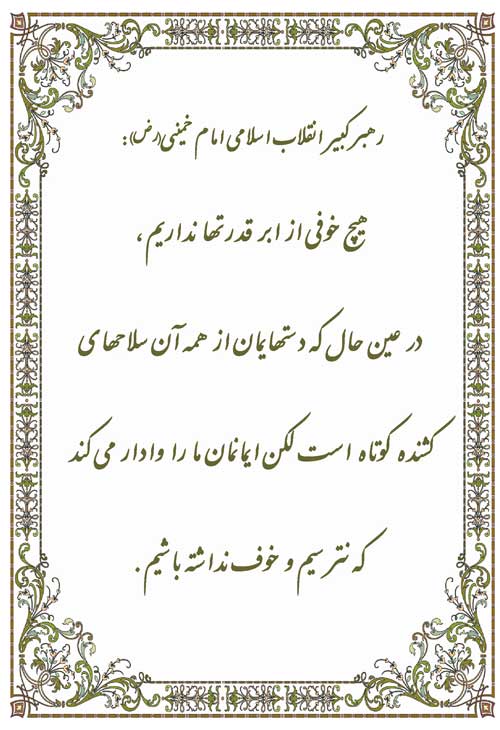 رهبر کبیر انقلاب اسلامی امام خمینی(رض):
هیچ خوفی از ابر قدرتها نداریم،
در عین حال که دستهایمان از همه آن سلاحهای
کشنده کوتاه است لکن ایمانمان ما را وادار می کند
که نترسیم و خوف نداشته باشیم.